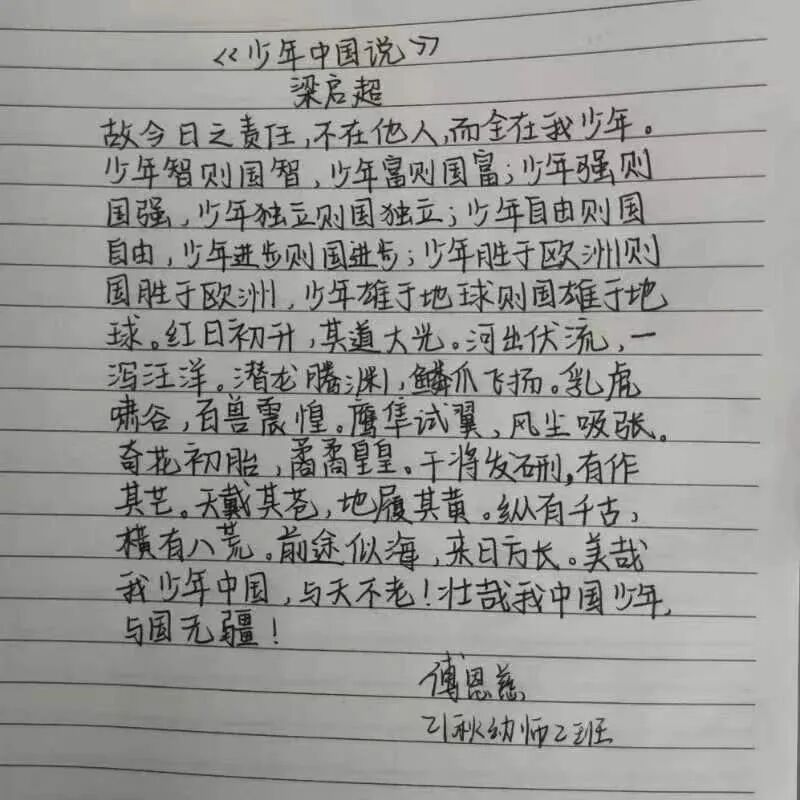 《少年中国说》
梁启超
故今日之责任，不在他人，而全在我少年。
少年智则国智，少年富则国富；少年强则
国强，少年独立则国独立；少年自由则国
自由，少年进步则国进步；少年胜于欧洲则
国胜于欧洲，少年雄于地球则国雄于地
球。红日初升，其道大光。河出伏流，一
泻汪洋。潜龙腾渊，鳞爪飞扬。乳虎
啸谷，百兽震惶。鹰隼试翼，风尘吸张。
奇花初胎，矞矞皇皇。干将发硎，有作
其芒。天戴其苍，地履其黄。纵有千古，
横有八荒。前途似海，来日方长。美哉
我少年中国，与天不老！壮哉我中国少年，
与国无疆！
傅恩慈
21秋幼师2班